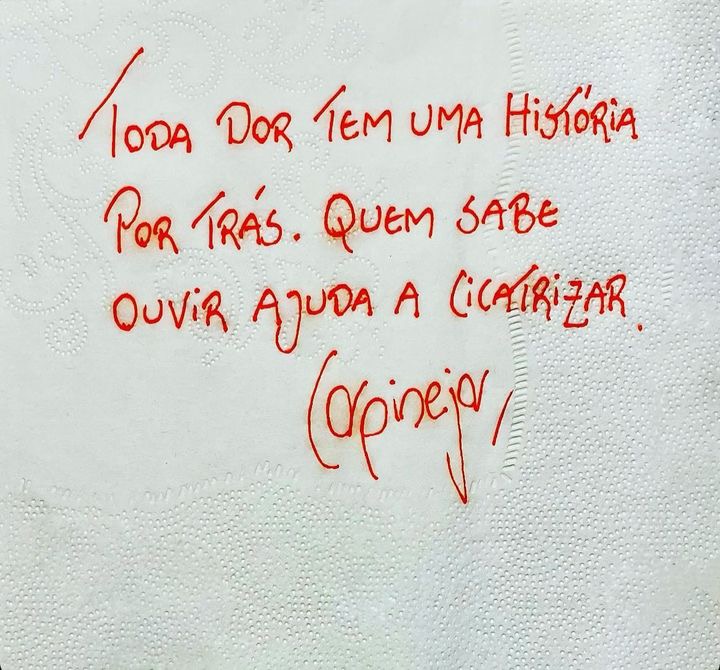 TODA DOR TEM UMA HISTÓRIA
POR TRÁS. QUEM SABE
OUVIR AJUDA A CICATRIZAR.
Carpinejar